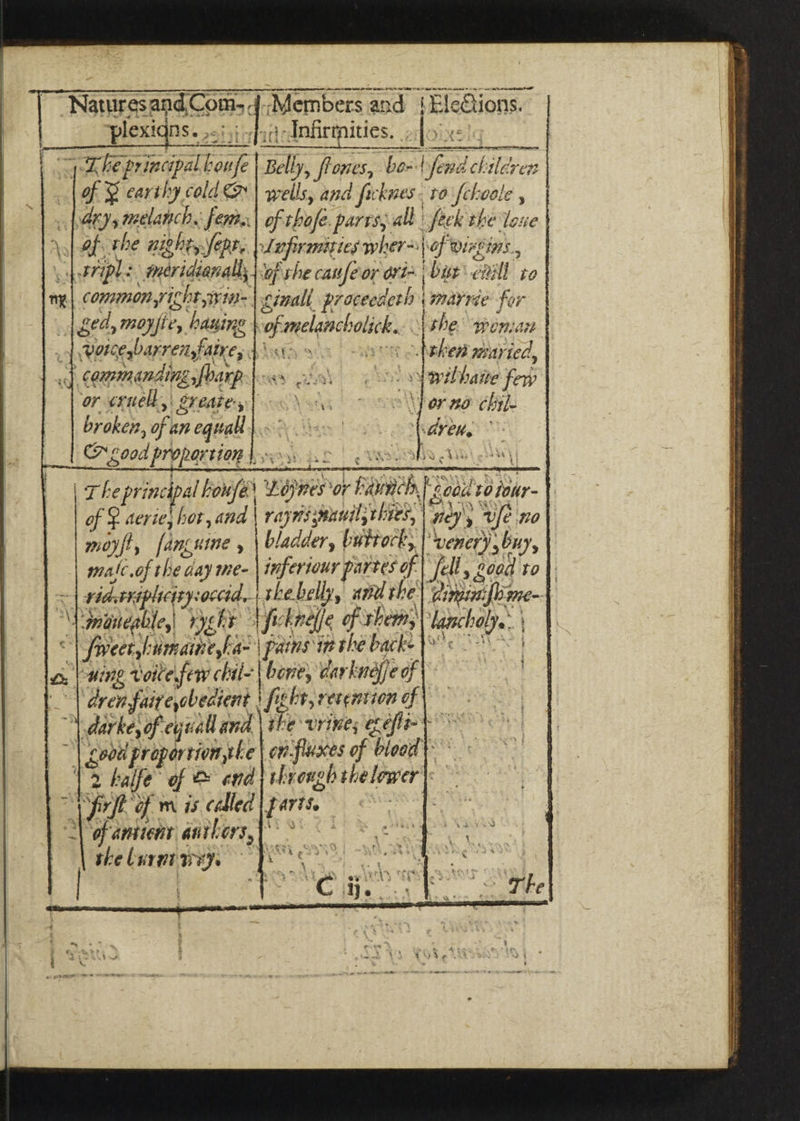 Natures and Com-
plexions.
The principal house
of ☿ earthy cold &
dry, melanch. fem.
of the night, sept.
tripl: meridionall,
♍ common, right, win-
ged, moyste, hauing
voice, barren, faire,
commanding, sharp
or cruell, greate,
broken, of an equall
& good proportion
Members and
Infirmities.
Belly, stones, bo-
wells, and sicknes
of those parts, all
Infirmities wher-
of the cause or ori-
ginall proceedeth
of melancholick.
Elections.
send children
to schoole,
seek the loue
of virgins,
but euill to
marrie for
the woman
then maried,
wil haue few
or no chil-
dreu.
The principal house
of ♀ aerie, hot, and
moyst, sanguine,
masc. of the day me-
rid. triplicity: occid.
moueable, ryght
sweet, humaine, ha-
♎ uing voice few chil-
dren faire, obedient
darke, of equall and
good proportion, the
2 halfe of ♎ and
first of ♏ is called
of antient authors,
the burnt way.
Loynes or haunch,
rayns, nauil, thies,
bladder, buttock,
inferiour partes of
the belly, and the
sicknesse of them,
pains in the back-
bone, darknesse of
sight, retention of
the vrine, egesti-
on. fluxes of blood
through the lower
parts.
good to iour-
ney, vse no
venery, buy,
sell, good to
diminish me-
lancholy.
C ij.
The